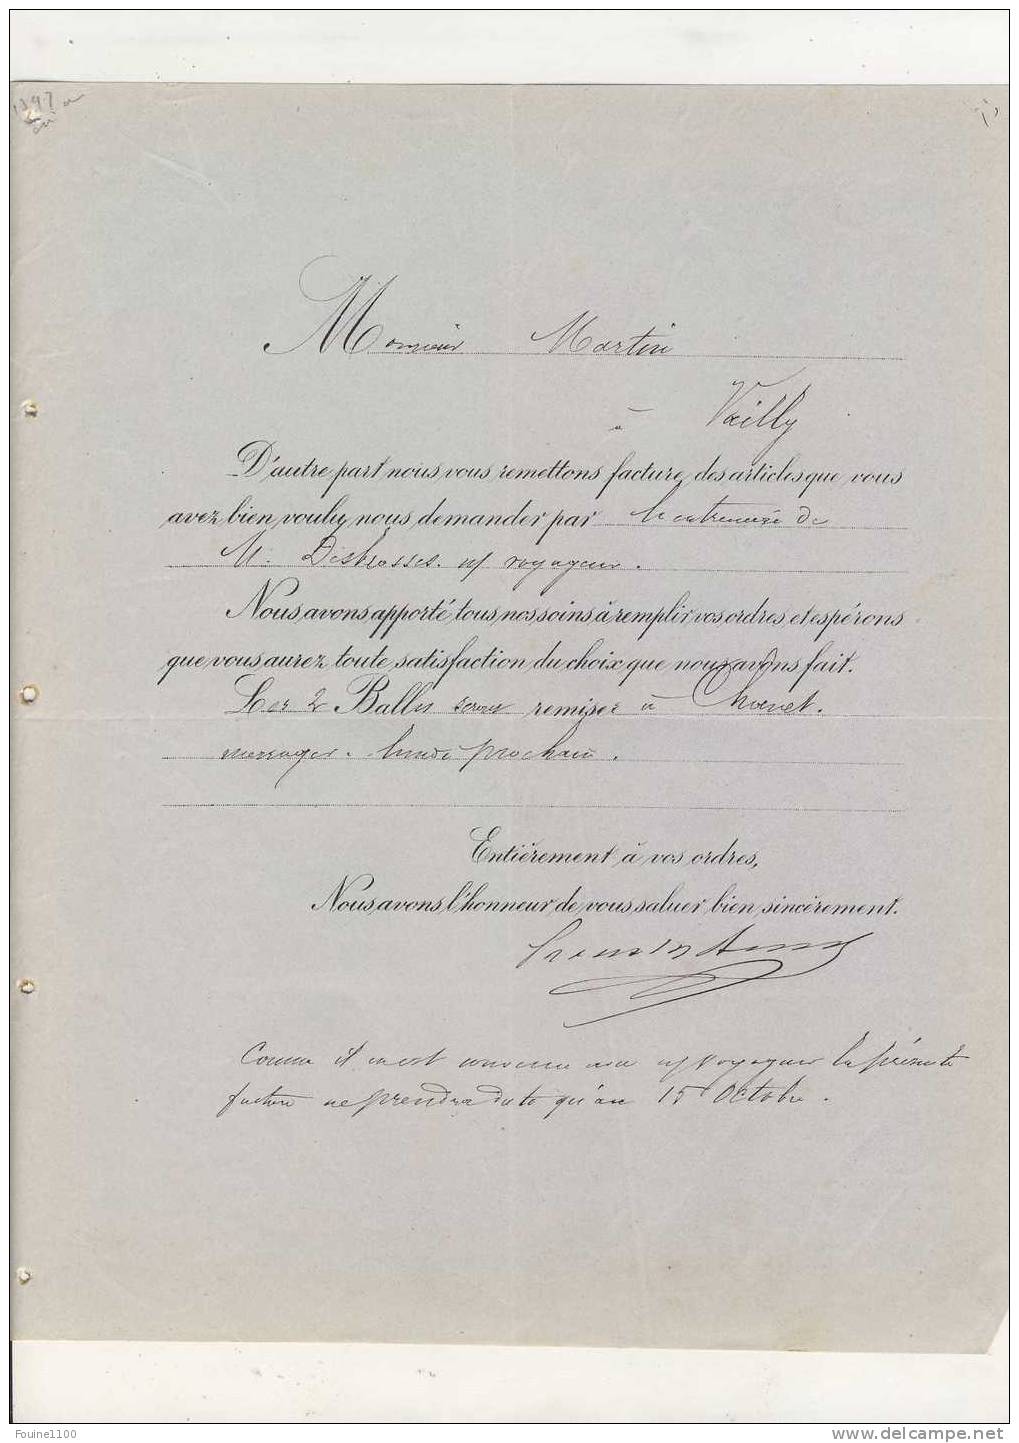 1897
Monsieur Martin
à Vailly
D'autre part nous vous remettons facture des articles que vous
avez bien voulu nous demander par l'entremise de
M. Desbrosses. n/ voyageur.
Nous avons apporté tous nos soins à remplir vos ordres et espérons
que vous aurez toute satisfaction du choix que nous avons fait.
Les 2 Balles seront remises à Chovet.
messager. lundi prochain.
Entièrement à vos ordres,
Nous avons l'honneur de vous saluer bien sincèrement.
Comme il en est convenu avec n/ voyageur la présente
facture ne prendra date qu'au 15 Octobre.
Foune1100
www.delcampe.net